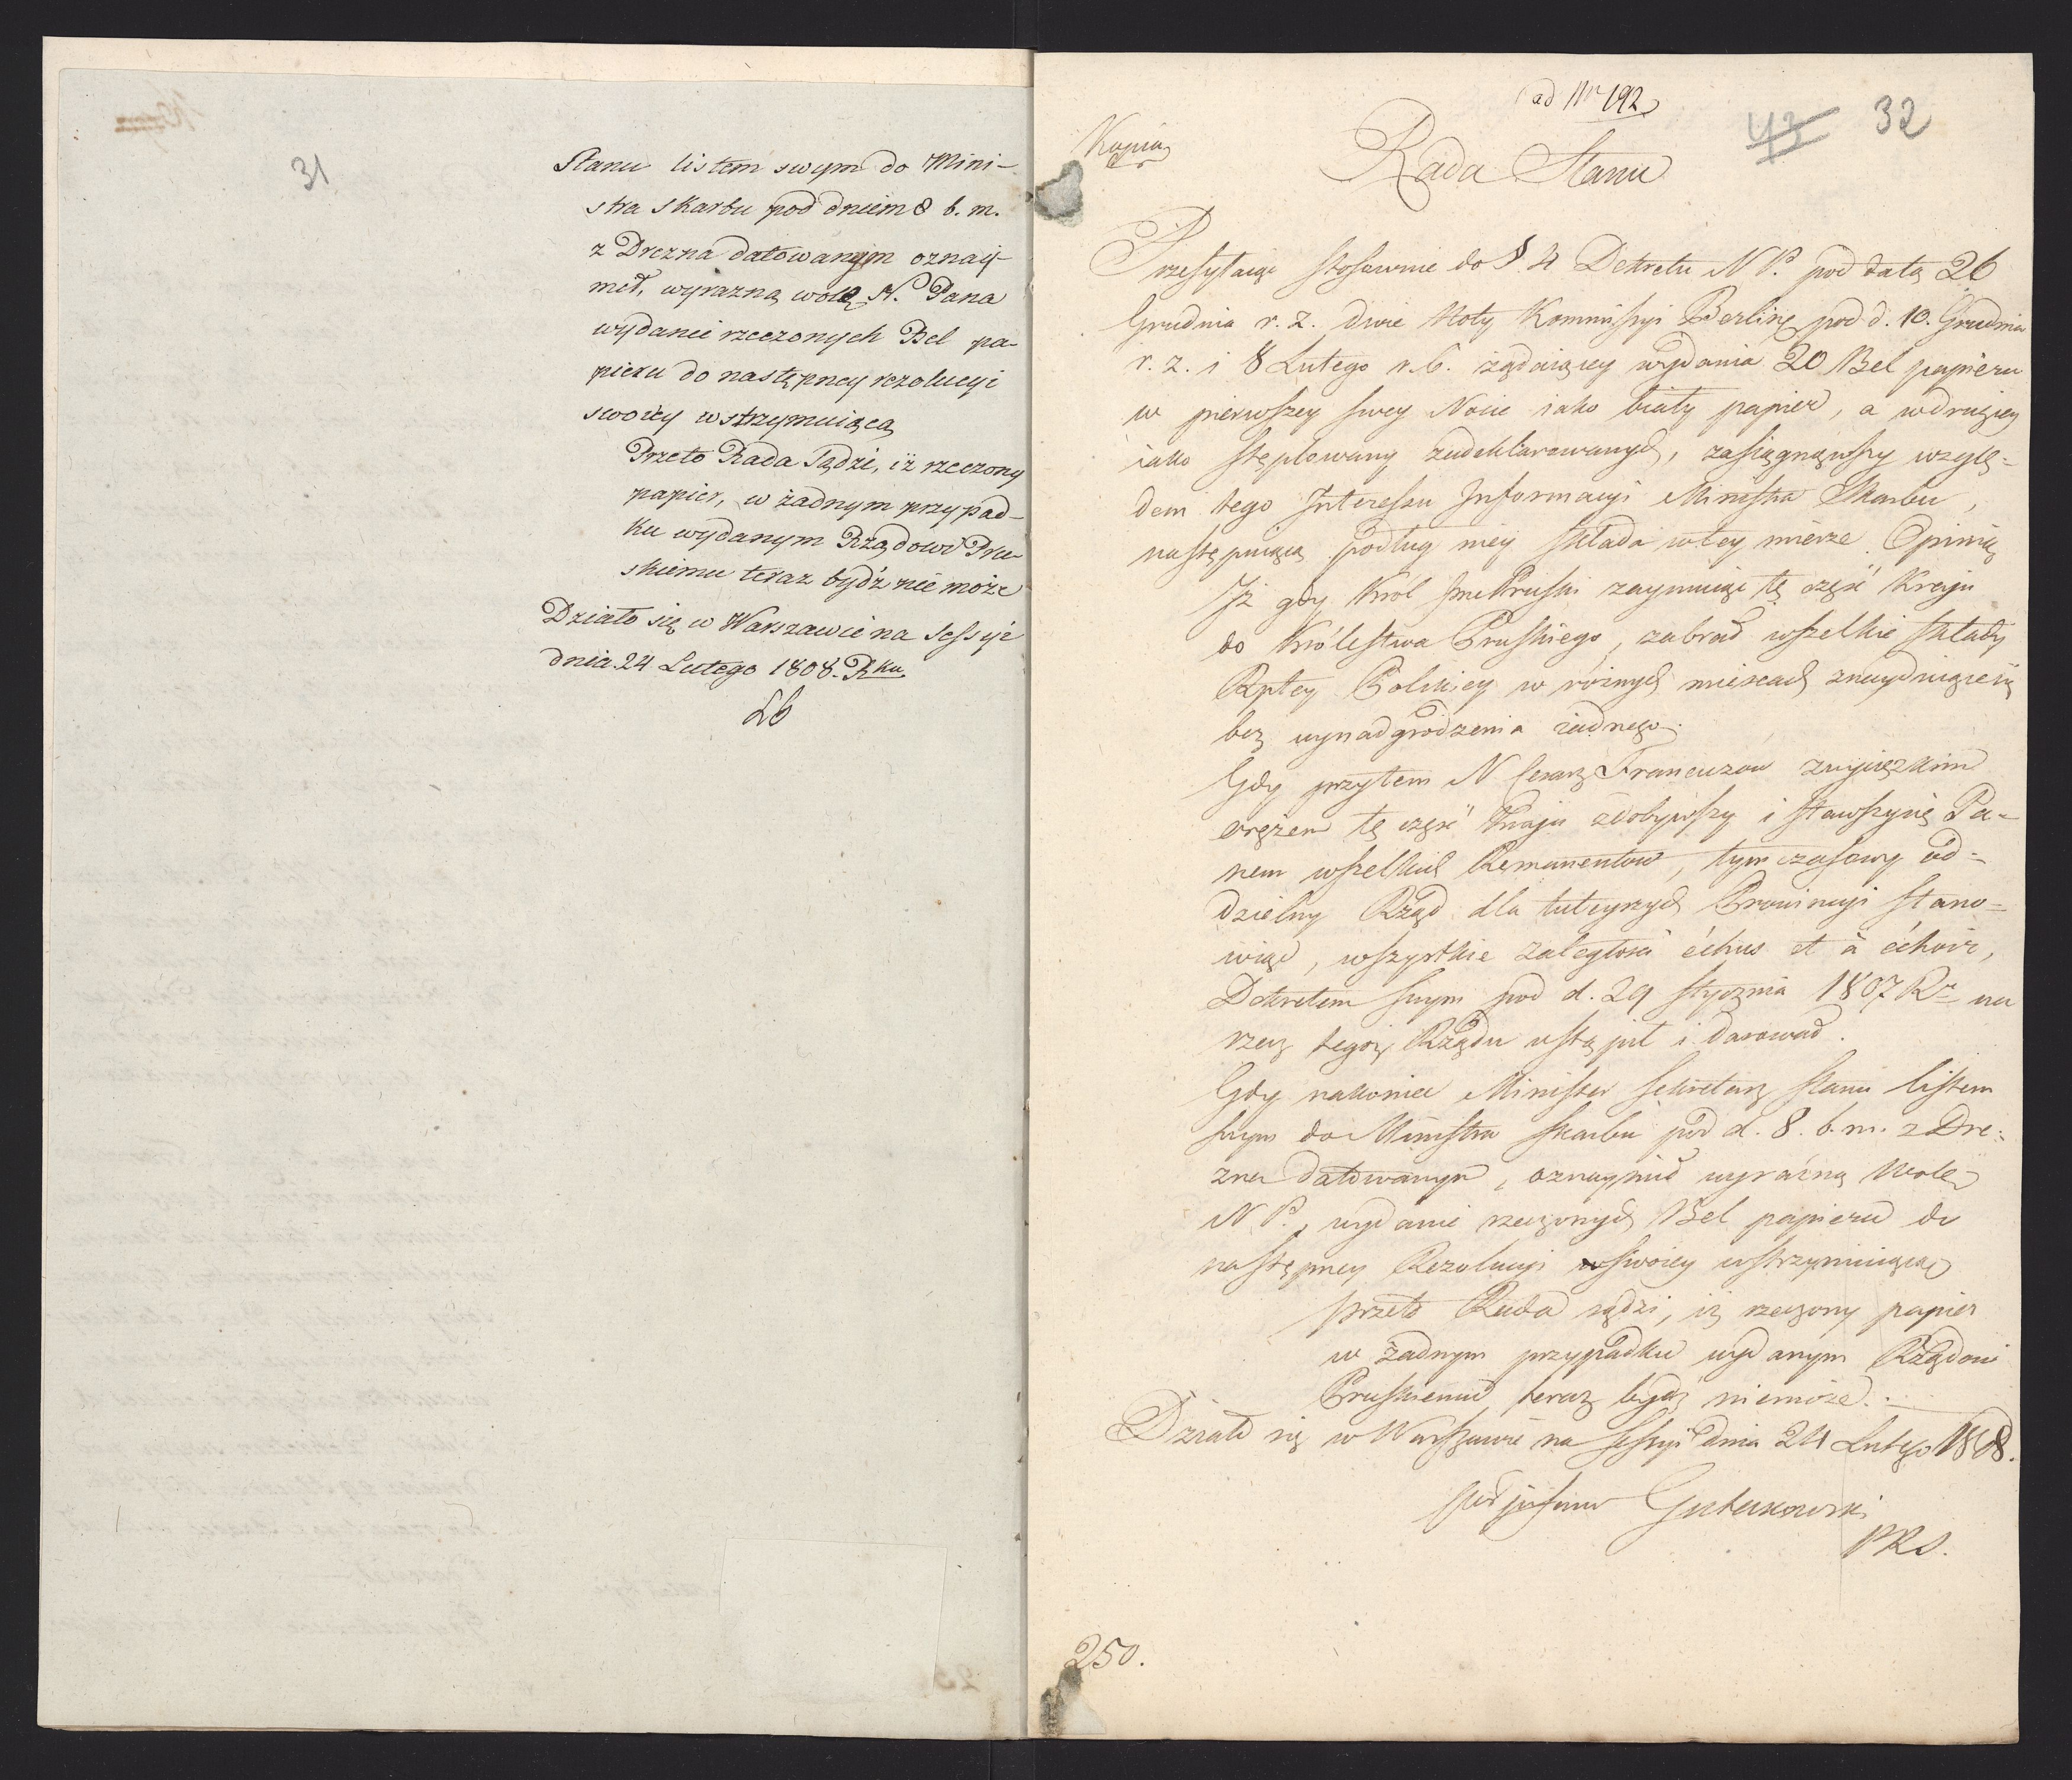 31
Stanu listem swym do Mini-
stra skarbu pod dniem 8 b. m.
z Drezna datowanym oznay-
mił, wyrazną wolę N. Pana
wydanie rzeczonych Bel pa-
pieru do następney rezolucyi
swoiey wstrzymuiącą
Przeto Rada Sądzi, iż rzeczony
papier, w żadnym przypad-
ku wydanym Rządowi Pru-
skiemu teraz bydź nie może
Działo się w Warszawie na Sessyi
dnia 24 Lutego 1808. Rku
Lb
ad Nr 192
43 32
Kopia
Rada Stanu
Przesyłaiąc stosownie do §. 4 Dekretu N P. pod datą 26
Grudnia r. z. dwie Noty Kommissyi Berlinz pod d. 10. Grudnia
r. z. i 8 Lutego r. b. żądaiącey wydania 20 Bel papieru
w pierwszey swey Nocie iako biały papier, a w drugiey
iako stęplowany zadeklarowanych, zasiągnąwszy wzglę-
dem tego Interessu Informacyi Ministra Skarbu,
następuiącą podług niey składa w tey mierze Opinią
Iż gdy Król Pruski zaymuiąc tę część Kraju
do Królestwa Pruskiego, zabrał wszelkie składy
Rptey Polskiey w różnych mieiscach znayduiące się
bez wynadgrodzenia żadnego.
Gdy przytem N Cesarz Francuzow zwycięzkim
orężem tę część Kraju zdobywszy i stawszy się Pa-
nem wszelkich Remanentow, tymczasowy od-
dzielny Rząd dla tuteyszych Prowincyi stano-
wiąc, wszystkie zaległości échus et à échoir,
Dekretem swym pod d. 29 stycznia 1807 Ru na
rzecz tegoż Rządu ustąpił i darował.
Gdy nakoniec Minister Sekretarz Stanu listem
swym do Ministra Skarbu pod d. 8. b. m. z Dre-
zna datowanym, oznaymił wyraźną wolę
N P., wydanie rzeczonych Bel papieru do
następney Rezolucyi swoiey wstrzymuiącą
przeto Rada sądzi, iż rzeczony papier
w żadnym przypadku wydanym Rządowi
Pruskiemu teraz bydź niemoże.
Działo się w Warszawie na Sessyi dnia 24 Lutego 1808.
podpisano Gutakowski
PRS.
250.